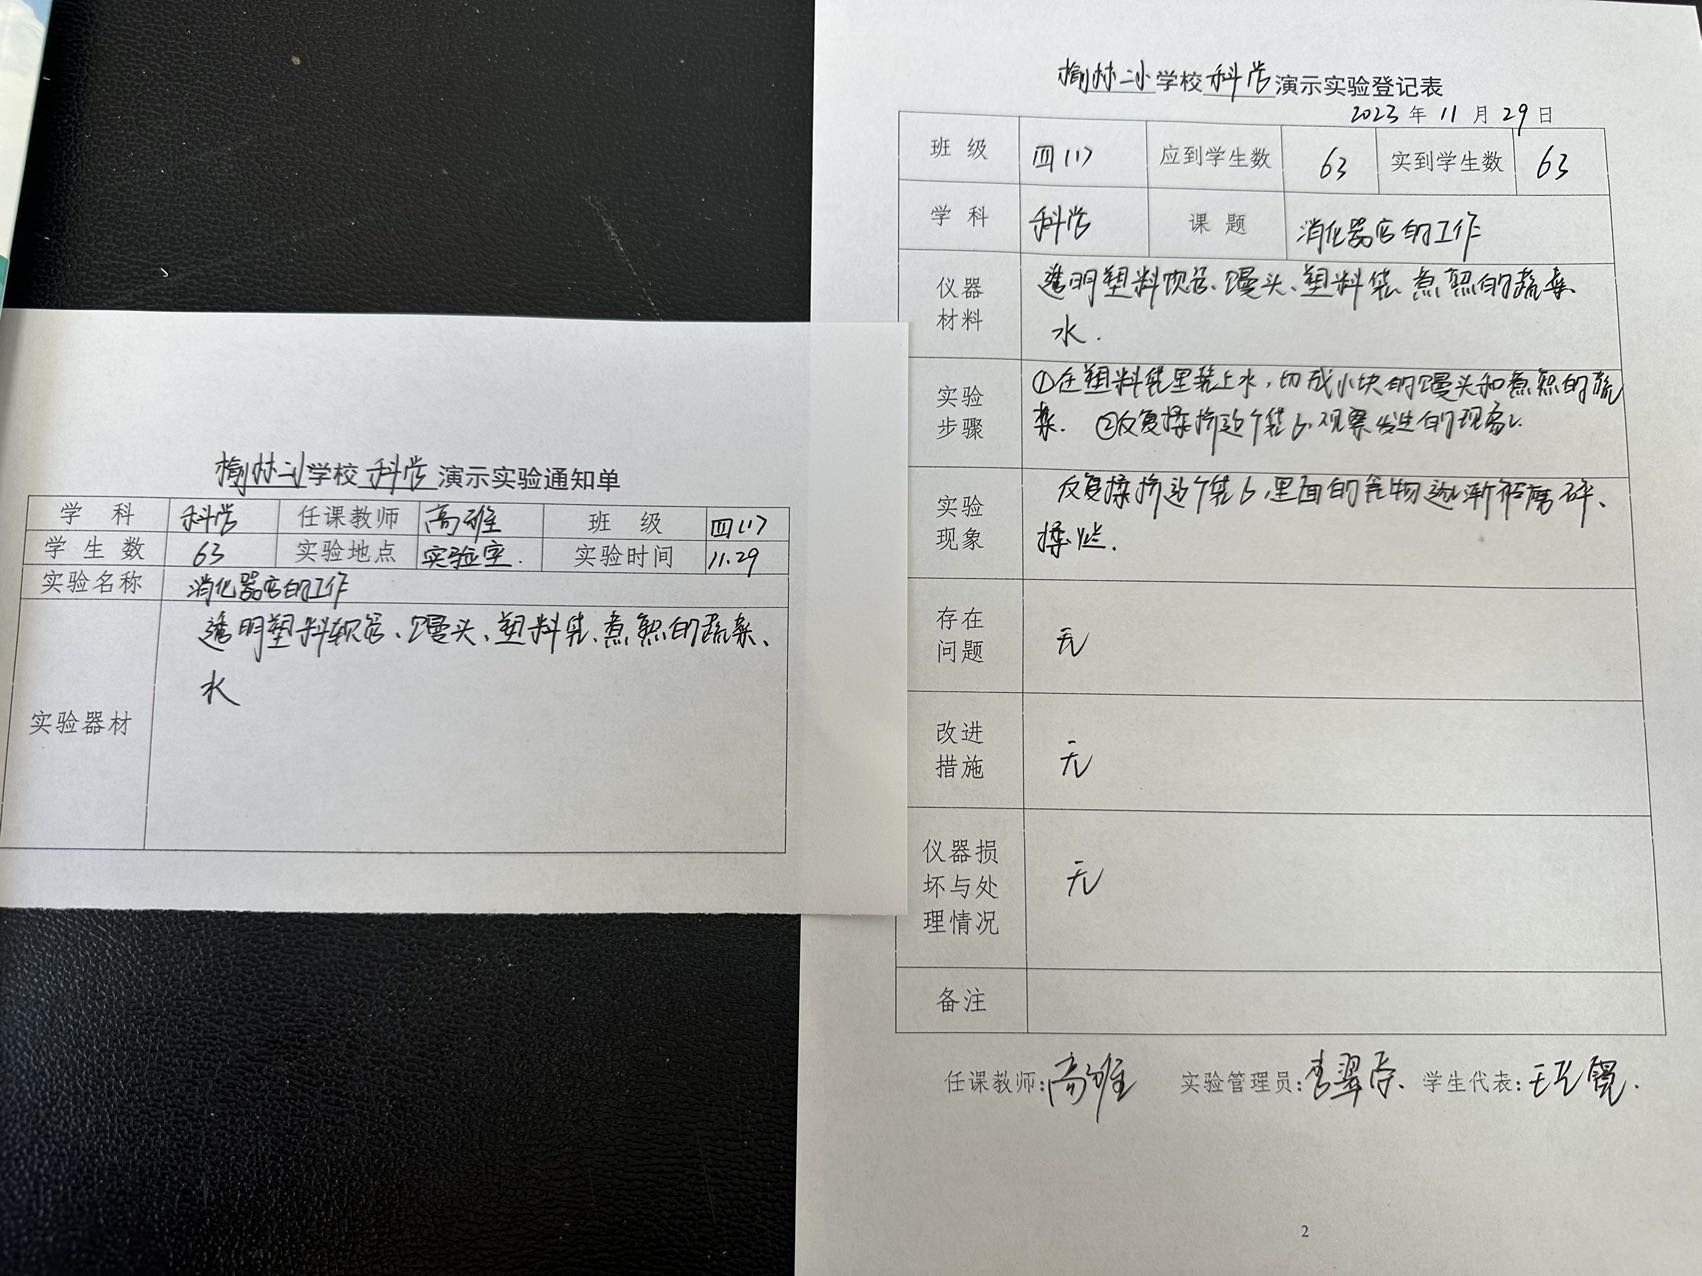 榆林二小学校科学演示实验通知单
学科 科学 任课教师 高雄 班级 四(1)
学生数 63 实验地点 实验室. 实验时间 11.29
实验名称 消化器官的工作
实验器材 透明塑料软管、馒头、塑料袋、煮熟的蔬菜、
水
榆林二小学校科学演示实验登记表
2023年11月29日
班级 四(1) 应到学生数 63 实到学生数 63
学科 科学 课题 消化器官的工作
仪器
材料
透明塑料软管、馒头、塑料袋、煮熟的蔬菜、
水.
实验
步骤
①在塑料袋里装上水,切成小块的馒头和煮熟的蔬
菜. ②反复揉挤这个袋子,观察发生的现象.
实验
现象
反复揉挤这个袋子,里面的食物逐渐被磨碎、
揉烂.
存在
问题
无
改进
措施
无
仪器损
坏与处
理情况
无
备注
任课教师:高雄 实验管理员: 学生代表:
2